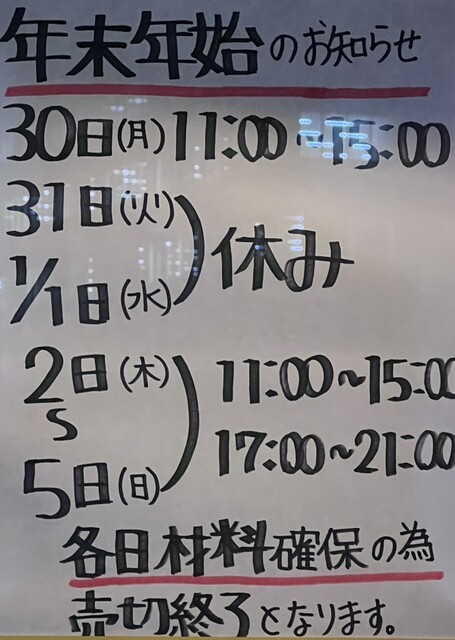 年末年始のお知らせ
30日(月)11:00~15:00
31日(火)
1/1日(水)
休み
2日(木)
S
5日(日)
11:00~15:00
17:00~21:00
各日材料確保の為
売切終了となります。